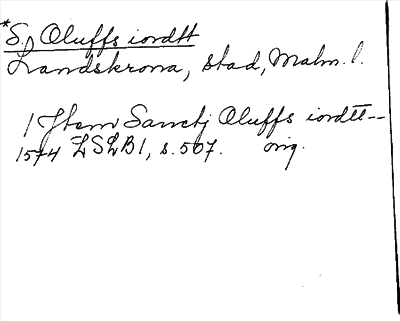 *S. Oluffs iordtt
Landskrona, stad, Malm. l.
1 Jtem Sanctj Oluffs iordtt--
1574 LSLB1, s. 507. orig.